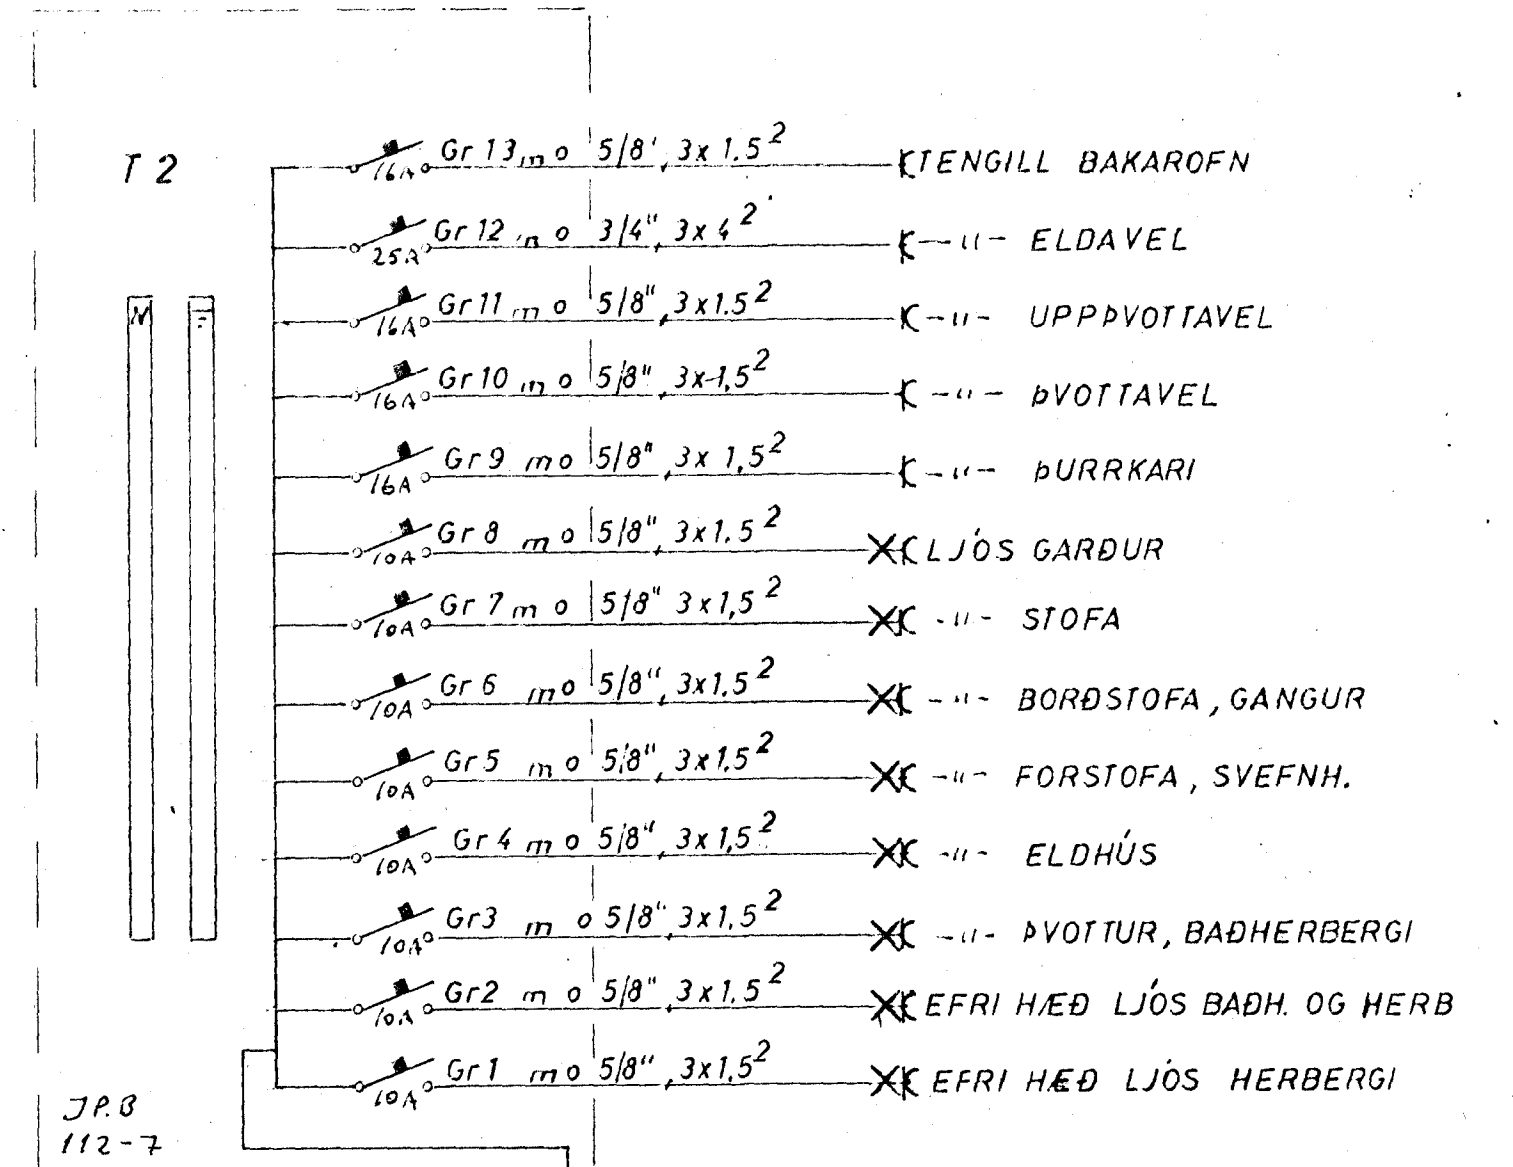 T 2
Gr 13 m o 5/8", 3x 1.5² TENGILL BAKAROFN
16A
Gr 12 m o 3/4", 3x 4² -"- ELDAVEL
25A
Gr 11 m o 5/8", 3x1.5² -"- UPPÞVOTTAVEL
16A
N
Gr 10 m o 5/8", 3x1,5² -"- ÞVOTTAVEL
16A
Gr 9 m o 5/8", 3x 1,5² -"- ÞURRKARI
16A
Gr 8 m o 5/8", 3x1.5² LJÓS GARÐUR
10A
Gr 7 m o 5/8" 3x1,5² -"- STOFA
10A
Gr 6 m o 5/8", 3x1.5² -"- BORÐSTOFA, GANGUR
10A
Gr 5 m o 5/8", 3x1.5² -"- FORSTOFA, SVEFNH.
10A
Gr 4 m o 5/8", 3x1,5² -"- ELDHÚS
10A
Gr3 m o 5/8", 3x1,5² -"- ÞVOTTUR, BAÐHERBERGI
10A
Gr2 m o 5/8", 3x1.5² EFRI HÆÐ LJÓS BAÐH. OG HERB
10A
Gr 1 m o 5/8", 3x1.5² EFRI HÆÐ LJÓS HERBERGI
10A
JP.B
112-7